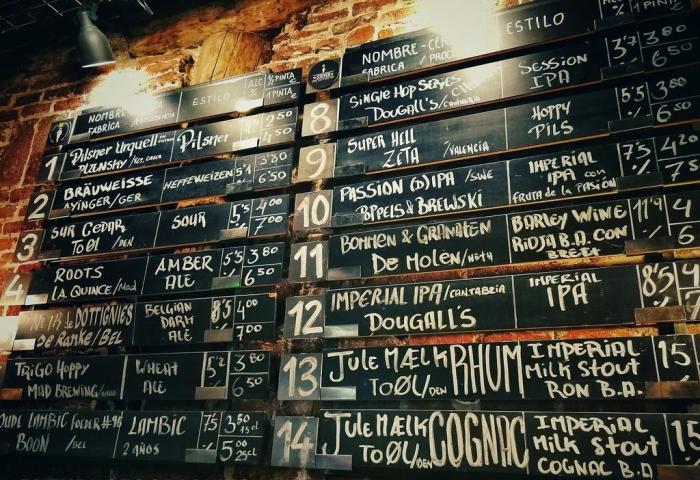 NOMBRE
FABRICA / PROCEDENCIA
ESTILO
ALC %
½ PINTA
1 PINTA
1
Pilsner Urquell
PLZENSKY / REZ. CHECA
Pilsner
2'50
4'50
2
BRÄUWEISSE
AYINGER/GER
HEFFEWEIZEN
5'1
3'20
6'50
3
SUR CEDAR
TO ØL /DEN
SOUR
5'5
4'00
7'00
4
ROOTS
LA QUINCE / Mad
AMBER
ALE
5'5
3'80
6'50
de DOTTIGNIES
De Ranke/BEL
BELGIAN
DARK
ALE
8'5
4'00
7'00
TRIGO HOPPY
MAD BREWING
WHEAT
ALE
5'2
3'80
6'50
OUDE LAMBIC FOEDER #96
BOON /BEL
LAMBIC
2 AÑOS
7'5
3'50 15cl
5'00 25cl
NOMBRE-CER
FABRICA / PROC
ESTILO
%
1 PINTA
8
SINGLE HOP SERIES
DOUGALL'S / CANTABRIA
SESSION
IPA
3'7
%
3'80
6'50
9
SUPER HELL
ZETA /VALENCIA
HOPPY
PILS
5'5
%
3'80
6'50
10
PASSION (D)IPA /SWE
POPPELS & BREWSKI
IMPERIAL
IPA CON
FRUTA de la PASIÓN
7'5
%
4'20
11
BOMMEN & GRANATEN
De MOLEN/NETH
BARLEY WINE
RIOJA B.A. CON
BRETT
11'9
%
4
6
12
IMPERIAL IPA/CANTABRIA
DOUGALL'S
IMPERIAL
IPA
8'5
%
13
JULE MÆLK RHUM
TO ØL/DEN
IMPERIAL
Milk Stout
RON B.A.
15
14
JULE MÆLK COGNAC
TO ØL/DEN
IMPERIAL
Milk Stout
COGNAC B.A
15